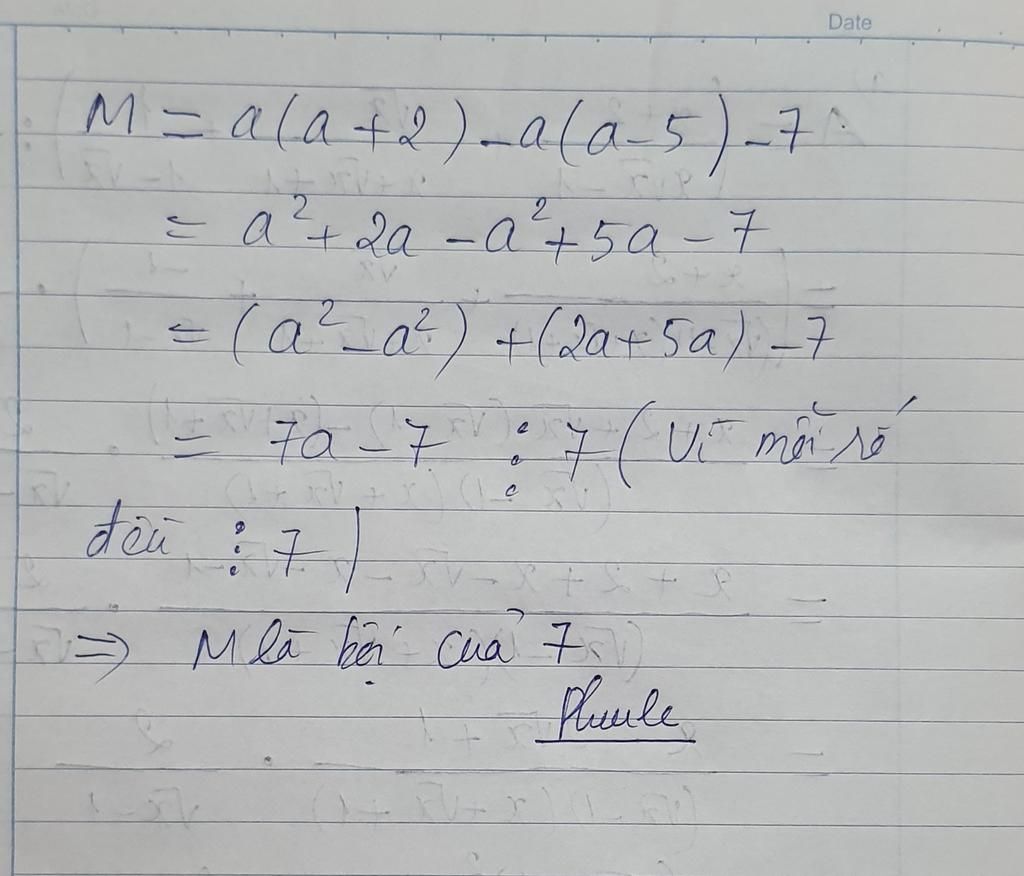 Date
M = a(a+2) - a(a-5) - 7
= a² + 2a - a² + 5a - 7
= (a² - a²) + (2a + 5a) - 7
= 7a - 7 ⋮ 7 (Vì mỗi số
đều ⋮ 7)
⇒ M là bội của 7